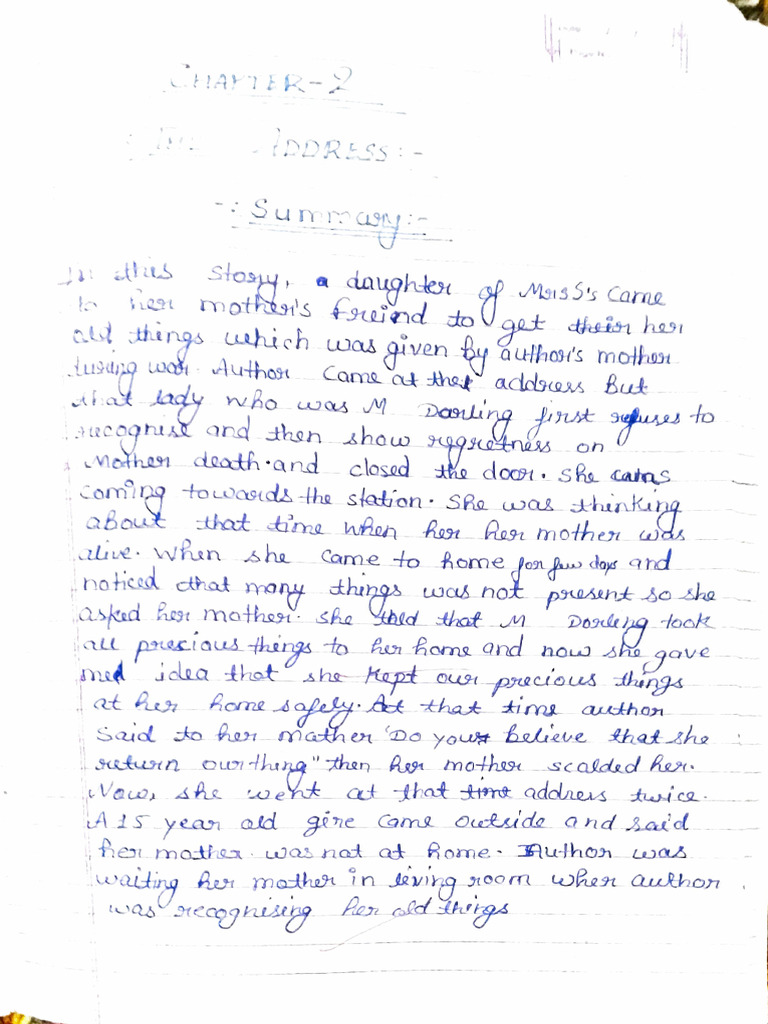 CHAPTER-2
ADDRESS:-
-: Summary:-
In this story, a daughter of Mrs S's came
to her mother's freind to get their her
old things which was given by author's mother
during war. Author came at the address But
that lady who was M Dorling first refuses to
recognise and then show regretness on
Mother death. and closed the door. She
coming towards the station. She was thinking
about that time when her her mother was
alive. When she came to home for few days and
noticed that many things was not present so she
asked her mother. She told that M Dorling took
all precious things to her home and now she gave
me idea that she kept our precious things
at her home safely. At that time author
said to her mother "Do you believe that she
return our thing" then her mother scalded her.
Now, she went at that time address twice.
A 15 year old gire came outside and said
her mother was not at home. Author was
waiting her mother in living room wher author
was recognising her old things